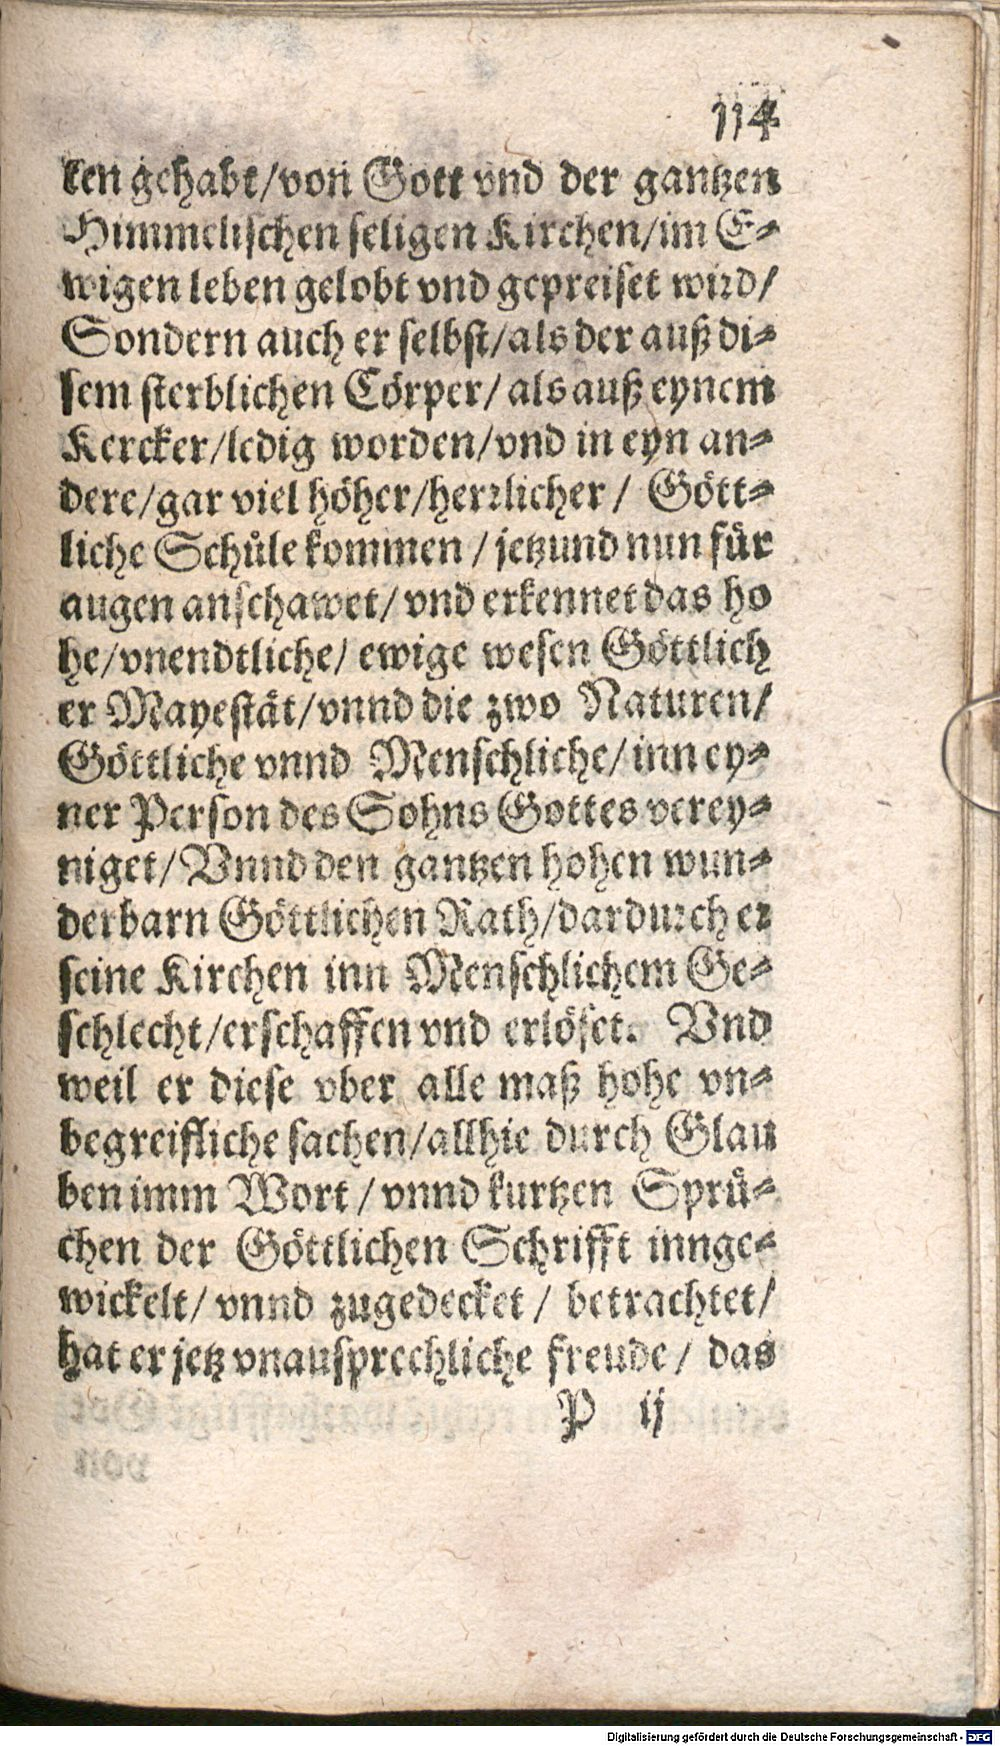 114
ken gehabt/von Gott vnd der gantzen
Himmelischen seligen Kirchen/im E-
wigen leben gelobt vnd gepreiset wird/
Sondern auch er selbst/als der auß di-
sem sterblichen Cörper/als auß eynem
Kercker/ledig worden/vnd in eyn an-
dere/gar viel höher/herrlicher/ Gött-
liche Schůle kommen/jetzund nun für
augen anschawet/vnd erkennet das ho
he/vnendtliche/ewige wesen Göttlich
er Mayestät/vnnd die zwo Naturen/
Göttliche vnnd Menschliche/inn ey-
ner Person des Sohns Gottes verey-
niget/Vnnd den gantzen hohen wun-
derbarn Göttlichen Rath/dardurch er
seine Kirchen inn Menschlichem Ge-
schlecht/erschaffen vnd erlöset. Vnd
weil er diese vber alle maß hohe vn-
begreifliche sachen/allhie durch Glau
ben imm Wort/vnnd kurtzen Sprü-
chen der Göttlichen Schrifft innge-
wickelt/vnnd zugedecket/betrachtet/
hat er jetz vnausprechliche freude/das
P ij
Digitalisierung gefördert durch die Deutsche Forschungsgemeinschaft - DFG